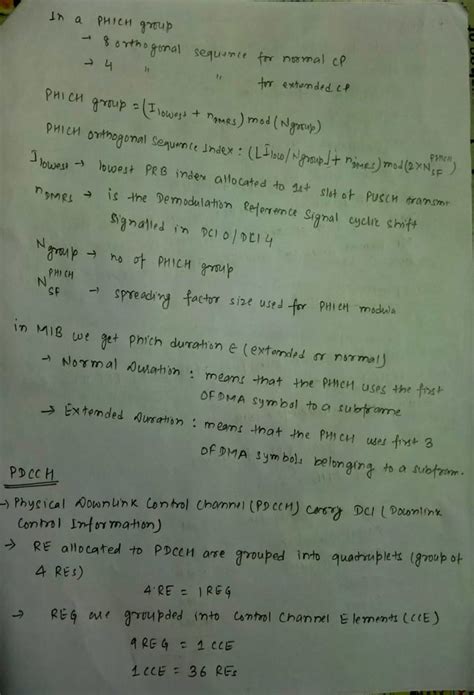 In a PHICH group
→ 8 orthogonal sequence for normal CP
→ 4 " " for extended CP
PHICH group = (I lowest + n DMRS) mod (N group)
PHICH orthogonal Sequence Index : (⌊I low/N group⌋ + n DMRS) mod (2 × N SF PHICH)
I lowest → lowest PRB index allocated to 1st slot of PUSCH transmi
n DMRS → is the Demodulation Reference Signal cyclic shift
signalled in DCI 0 / DCI 4
N group → no of PHICH group
N SF PHICH → spreading factor size used for PHICH modula
in MIB we get phich duration ∈ (extended or normal)
→ Normal Duration : means that the PHICH uses the first
OFDMA symbol to a subframe
→ Extended Duration : means that the PHICH uses first 3
OFDMA symbols belonging to a subfram.
PDCCH
→ Physical Downlink Control Channel (PDCCH) carry DCI (Downlink
Control Information)
→ RE allocated to PDCCH are grouped into quadruplets (group of
4 REs)
4 RE = 1 REG
→ REG are groupded into Control Channel Elements (CCE)
9 REG = 1 CCE
1 CCE = 36 REs